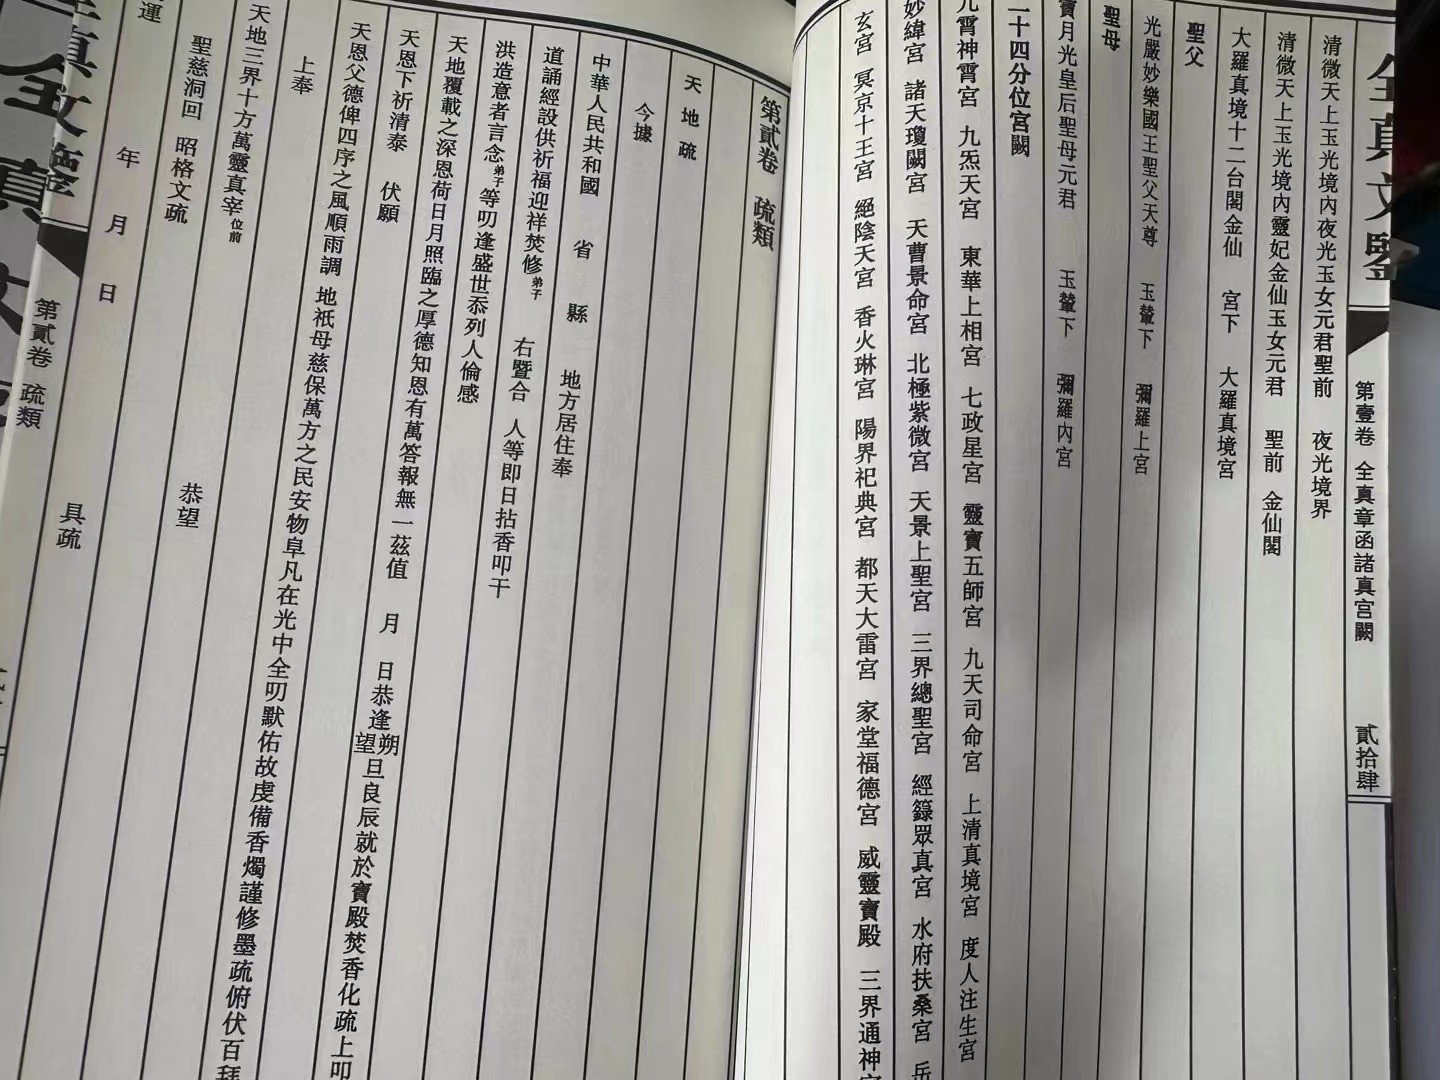 全真文鑒
第壹卷 全真章函諸真宮闕 貳拾肆
清微天上玉光境內夜光玉女元君聖前 夜光境界
清微天上玉光境內靈妃金仙玉女元君 聖前 金仙閣
大羅真境十二台閣金仙 宮下 大羅真境宮
聖父
光嚴妙樂國王聖父天尊 玉輦下 彌羅上宮
聖母
寶月光皇后聖母元君 玉輦下 彌羅內宮
二十四分位宮闕
九霄神霄宮 九炁天宮 東華上相宮 七政星宮 靈寶五師宮 九天司命宮 上清真境宮 度人注生宮
妙緯宮 諸天瓊闕宮 天曹景命宮 北極紫微宮 天景上聖宮 三界總聖宮 經籙眾真宮 水府扶桑宮 岳
玄宮 冥京十王宮 絕陰天宮 香火琳宮 陽界祀典宮 都天大雷宮 家堂福德宮 威靈寶殿 三界通神宮
第貳卷 疏類
天地疏
今據
中華人民共和國 省 縣 地方居住奉
道誦經設供祈福迎祥焚修弟子 右暨合 人等即日拈香叩干
洪造意者言念弟子等叨逢盛世忝列人倫感
天地覆載之深恩荷日月照臨之厚德知恩有萬答報無一茲值 月 日恭逢朔望旦良辰就於寶殿焚香化疏上叩
天恩下祈清泰 伏願
天恩父德俾四序之風順雨調 地祇母慈保萬方之民安物阜凡在光中全叨默佑故虔備香燭謹修墨疏俯伏百拜
上奉
天地三界十方萬靈真宰位前
聖慈洞回 昭格文疏 恭望
運 年 月 日 具疏
全真文鑒
第貳卷 疏類